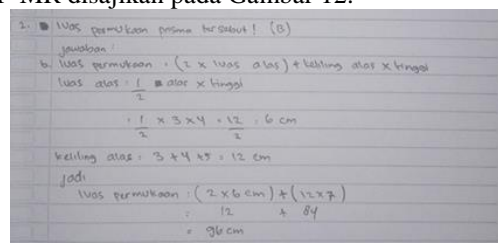 MR disajikan pada Gambar 12.
2. luas permukaan prisma tersebut! (B)
jawaban :
b. luas permukaan : (2 x luas alas) + keliling alas x tinggi
luas alas : 1/2 alas x tinggi
: 1/2 x 3 x 4 = 12/2 = 6 cm
keliling alas = 3 + 4 + 5 = 12 cm
jadi
luas permukaan : (2 x 6 cm) + (12 x 7)
= 12 + 84
= 96 cm